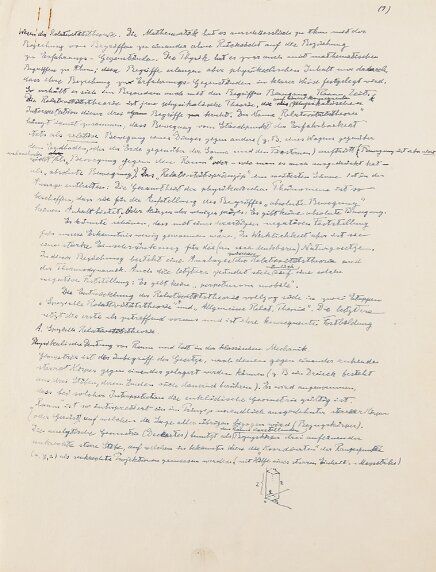 (1)
Wesen der Relativitätstheorie. Die Mathematik hat es ausschliesslich zu thun mit der
Beziehung von Begriffen zu einander ohne Rücksicht auf die Beziehung
zu Erfahrungs-Gegenständen. Die Physik hat es zwar auch mit mathematischen
Begriffen zu thun; diese Begriffe erlangen aber physikalischen Inhalt nur dadurch,
dass ihre Beziehung zu Erfahrungs-Gegenständen in klarer Weise festgelegt wird.
So verhält es sich im Besonderen auch mit den Begriffen Bewegung, Raum, Zeit.
Die Relativitätstheorie ist jene physikalische Theorie, die physikalischen
Interpretation dieser drei Begriffe. Der Name "Relativitätstheorie"
hängt damit zusammen, dass Bewegung vom Standpunkt der Erfahrbarkeit
stets als relative Bewegung eines Dinges gegen andere (z. B. eines Wagens gegenüber
dem Erdboden oder der Erde gegenüber der Sonne und den Fixsternen) auftritt (Bewegung ist aber
nicht als "Bewegung gegen den Raum" oder - wie man es auch ausgedrückt hat -
als "absolute Bewegung"). Das "Relativitätsprinzip" im weitesten Sinne ist in der
Aussage enthalten: Die Gesamtheit der physikalischen Phänomene ist so
beschaffen, dass sie für die Einführung des Begriffes "absolute Bewegung"
keinen Anhalt bietet, oder kürzer aber weniger präzis: Es gibt keine absolute Bewegung.
Es könnte scheinen, dass mit einer derartigen negativen Feststellung
für unsere Erkenntnis wenig gewonnen wäre. In Wirklichkeit aber ist sie
eine starke Einschränkung für die (an sich denkbaren) Naturgesetze.
In dieser Beziehung besteht eine Analogie zwischen Relativitätstheorie und
der Thermodynamik. Auch die letztere gründet sich auf eine solche
negative Feststellung: "Es gibt kein perpetuum mobile".
Die Entwicklung der Relativitätstheorie vollzog sich in zwei Etappen
"Spezielle Relativitätstheorie" und "Allgemeine Relat. Theorie". Die letztere
setzt die erste als zutreffend voraus und ist ihre konsequente Fortbildung
A. Spezielle Relativitätstheorie
Physikalische Deutung von Raum und Zeit in der klassischen Mechanik
Geometrie ist der Inbegriff der Gesetze, nach denen gegen einander ruhende
starre Körper gegen einander gelagert werden können (z. B. ein Dreieck besteht
aus drei Stäben, deren Enden sich dauernd berühren). Es wird angenommen,
dass bei solcher Interpretation die euklidische Geometrie gültig ist.
Raum ist bei Interpretation ein im Prinzip unendlich ausgedehnter starrer Körper
(oder Gerüst) auf welchen die Lage aller übrigen bezogen wird (Bezugskörper).
Die analytische Geometrie (Descartes) benutzt als Bezugskörper drei aufeinander
senkrechte starre Stäbe, auf welchen die Koordinaten der Raumpunkte
(x, y, z) als senkrechte Projektionen gemessen werden (mit Hilfe eines starren Einheits-Massstabes)
z